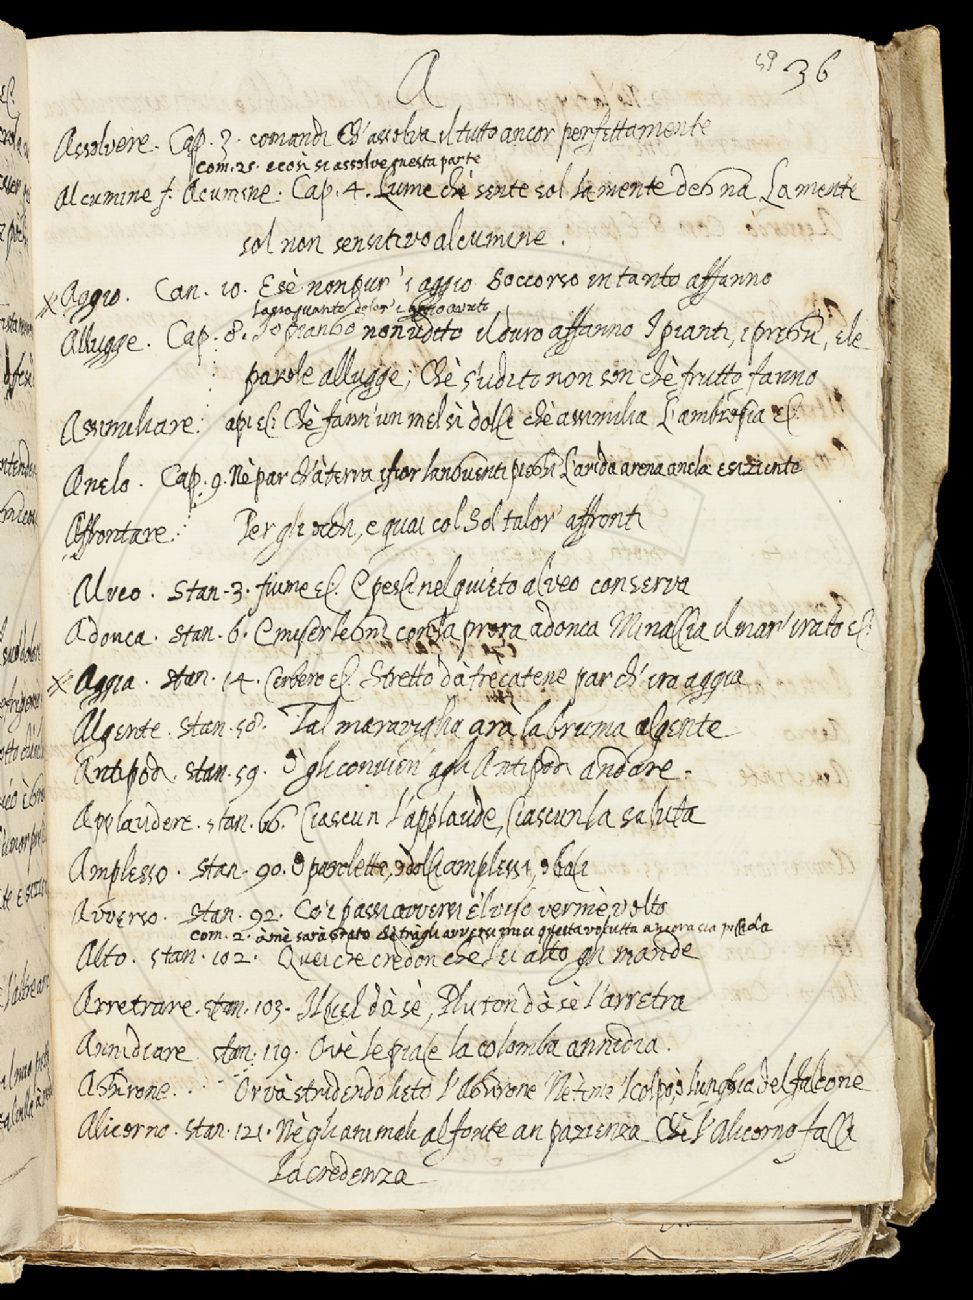 A
59 36
Assolvere. Cap. 3. comandi Ch'assolva il tutto ancor perfettamente
Com. 25. e così si assolve questa parte
Alcumine f. Acumine. Cap. 4. Lume chè sente sol la mente Lamente
sol non sensitivo alcumine.
Aggio. Can. 10. E s'è non pur' i aggio Soccorso in tanto affanno
Lasso quanto dolor' i aggio avuto
Allugge. Cap. 8. Io pianto non udito il duro affanno I pianti, i preghi, e le
parole allugge; Chè s'udito non son chè frutto fanno
Assimiliare: api &c. Chè fann'un mel sì dolce chè assimilia L'ambrosia &c.
Anelo. Cap. 9. Nè par ch'à terra i fior L'arida arena anela e siziente
Affrontare: Per gli occhi, e quai col Sol talor' affronti
Alveo. Stan. 3. fiume &c. E pesci nel quieto alveo conserva
Adonca. Stan. 6. con la prora adonca Minaccia il mar' irato &c.
Aggia. Stan. 14. Cerbero &c. Stretto dà tre catene par ch'ira aggia
Algente. Stan. 58. Tal maraviglia arà la bruma algente
Antipodi. Stan. 59. O gli convien' agli Antipodi andare.
Applaudere. Stan. 66. Ciascun l'applaude, Ciascun la saluta
Amplesso. Stan. 90. O parolette, o dolci amplessi, o baci
Avverso. Stan. 92. Co' i passi avversi e'l viso ver mè volto
Com. 2. à mè sarà stato dè tràgli avversi questa volutta ancora sia piccola
Alto. Stan. 102. Quei che credon che lei alto gli mande
Arretrare. Stan. 103. Il Ciel dà sè, Pluton dà sè l'arretra
Annidiare Stan. 119. Ov'è le piace la colomba annidia.
Aghirone. Or và stridendo lieto l'Aghirone Nè teme 'l colpo, o l'unghia del falcone
Alicorno. Stan. 121. Nè gli animali al fonte an pazienza Chè l'Alicorno facci
La credenza